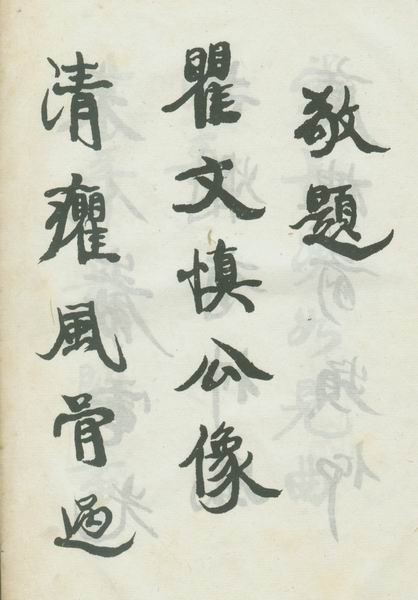 敬題
瞿文慎公像
清癯風骨過